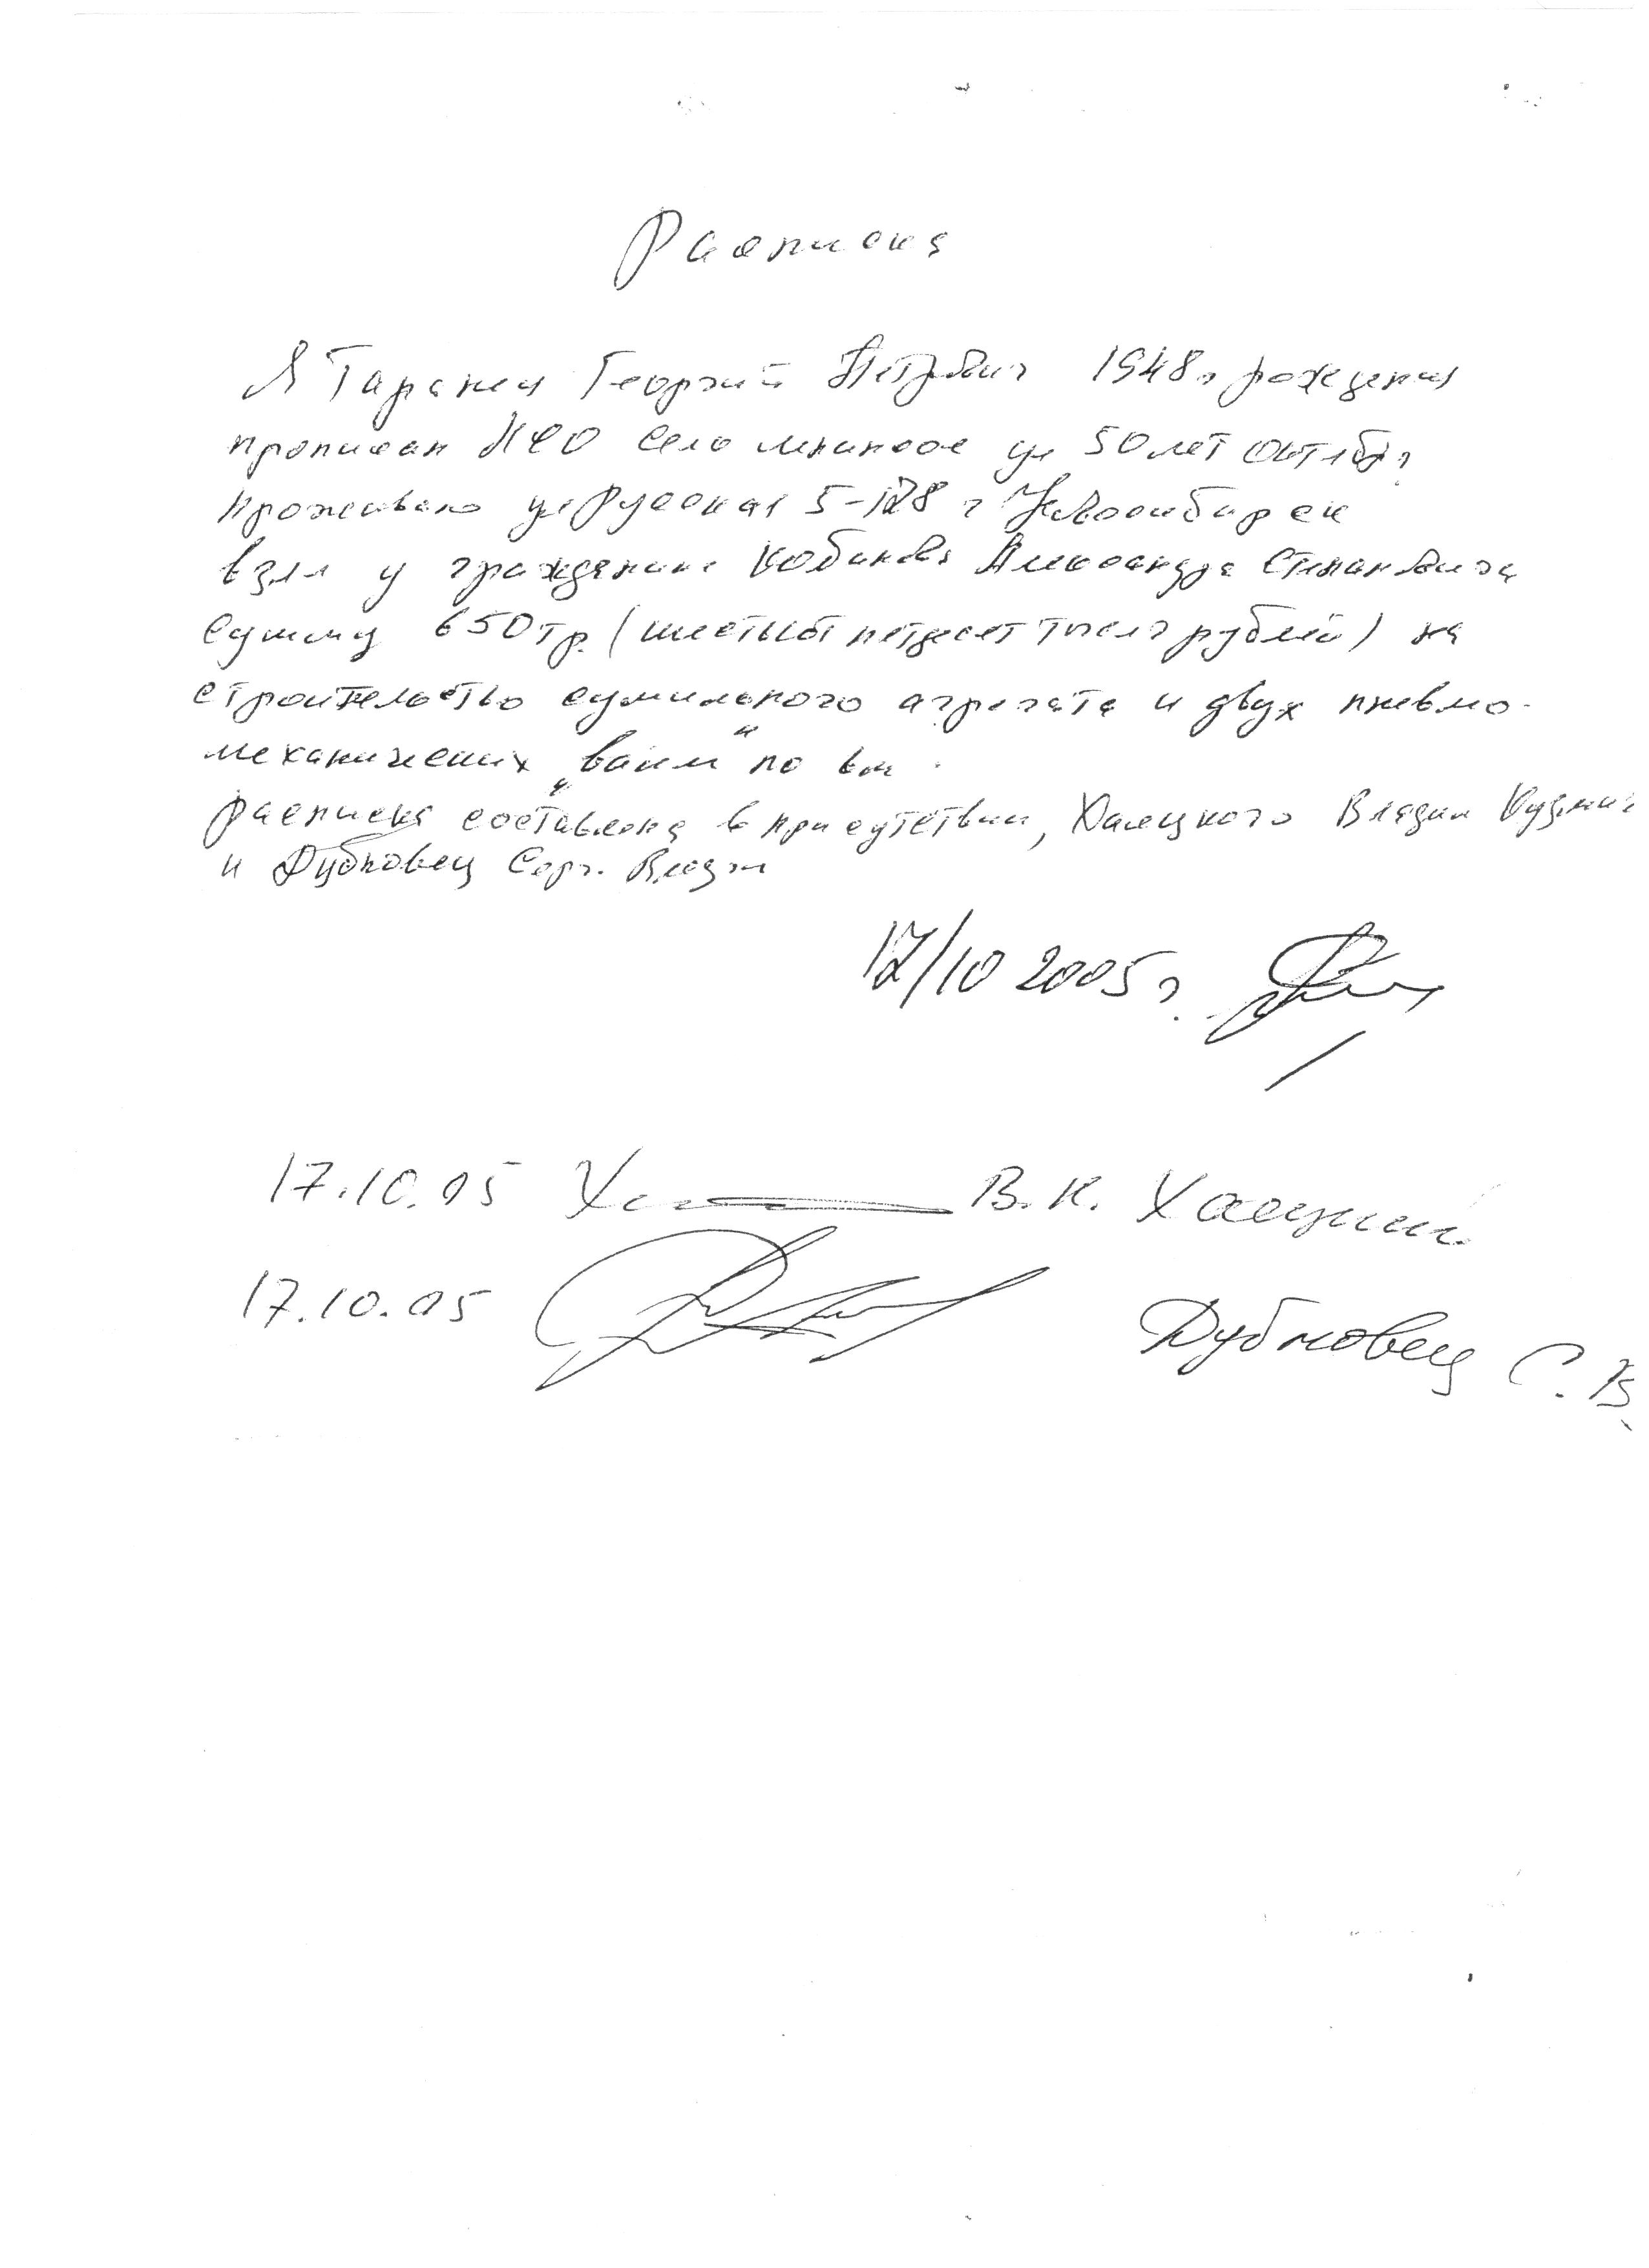 Расписка
Я Таранен Георгий Петрович 1948 г рождения
прописан НСО село ул 50 лет Октябр
Проживаю ул Русская 5-128 г Новосибирск
взял у гражданина Кобикова Александра Степановича
сумму 650 тр. (шестьсот петдесет тысяч рублей) на
строительство сушильного агрегата и двух пневмо-
механических „ваим" по
расписка составлена в присутствии, Халецкого Владим Кузмич
и Дубковец Серг. Влад
17/10 2005 г.
17.10.05 В.К. Халецкий
17.10.05 Дубковец С.В.